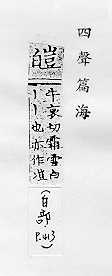 四聲篇海
皚
牛哀切霜雪白
丨丨也亦作溰
(白部
P.413)